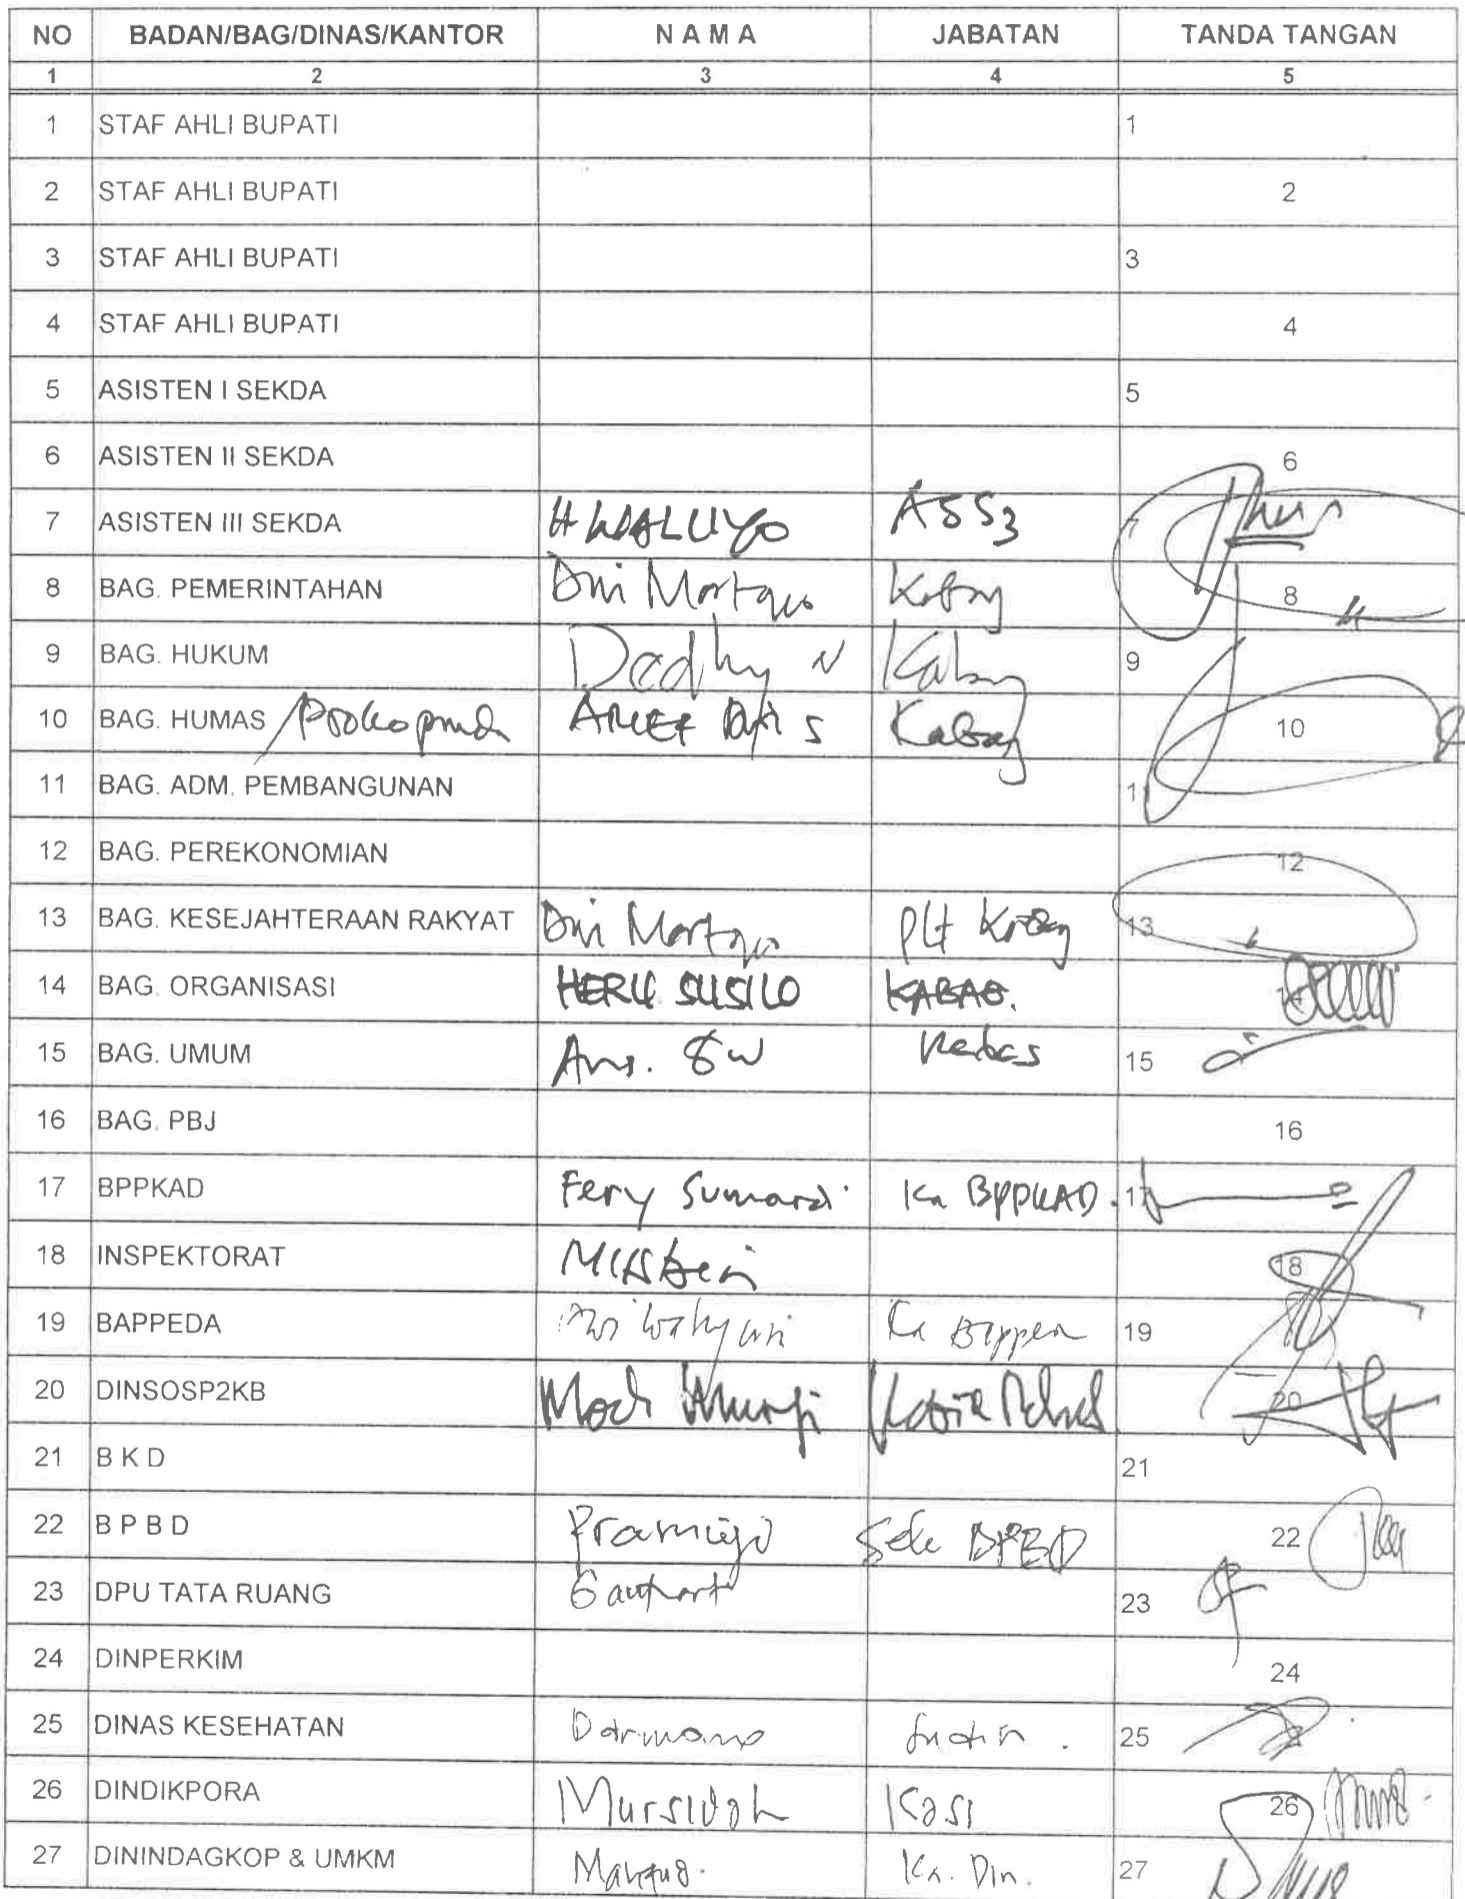 NO BADAN/BAG/DINAS/KANTOR N A M A JABATAN TANDA TANGAN
1 2 3 4 5
1 STAF AHLI BUPATI 1
2 STAF AHLI BUPATI 2
3 STAF AHLI BUPATI 3
4 STAF AHLI BUPATI 4
5 ASISTEN I SEKDA 5
6 ASISTEN II SEKDA 6
7 ASISTEN III SEKDA H WALUYO ASS3 7
8 BAG. PEMERINTAHAN Dwi Martopo Kabag 8
9 BAG. HUKUM Dedhy N Kabag 9
10 BAG. HUMAS /Prokopimda ARIEF S Kabag 10
11 BAG. ADM. PEMBANGUNAN 11
12 BAG. PEREKONOMIAN 12
13 BAG. KESEJAHTERAAN RAKYAT Dwi Martopo Plt Kabag 13
14 BAG. ORGANISASI HERU SUSILO KABAG. 14
15 BAG. UMUM 15
16 BAG. PBJ 16
17 BPPKAD Fery Sumardi Ka BPPKAD. 17
18 INSPEKTORAT 18
19 BAPPEDA Ka 19
20 DINSOSP2KB 20
21 B K D 21
22 B P B D Pramujo Sek BPBD 22
23 DPU TATA RUANG 23
24 DINPERKIM 24
25 DINAS KESEHATAN Darmono 25
26 DINDIKPORA Mursidah Kasi 26
27 DININDAGKOP & UMKM Ka. Din. 27